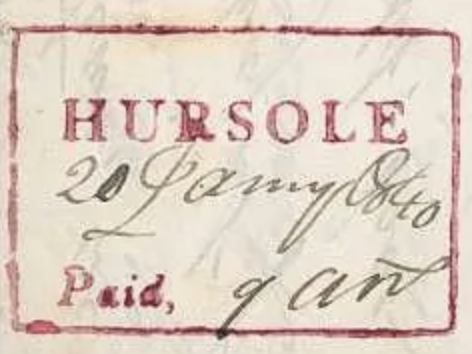 HURSOLE
20 Jany 1840
Paid, 9 an